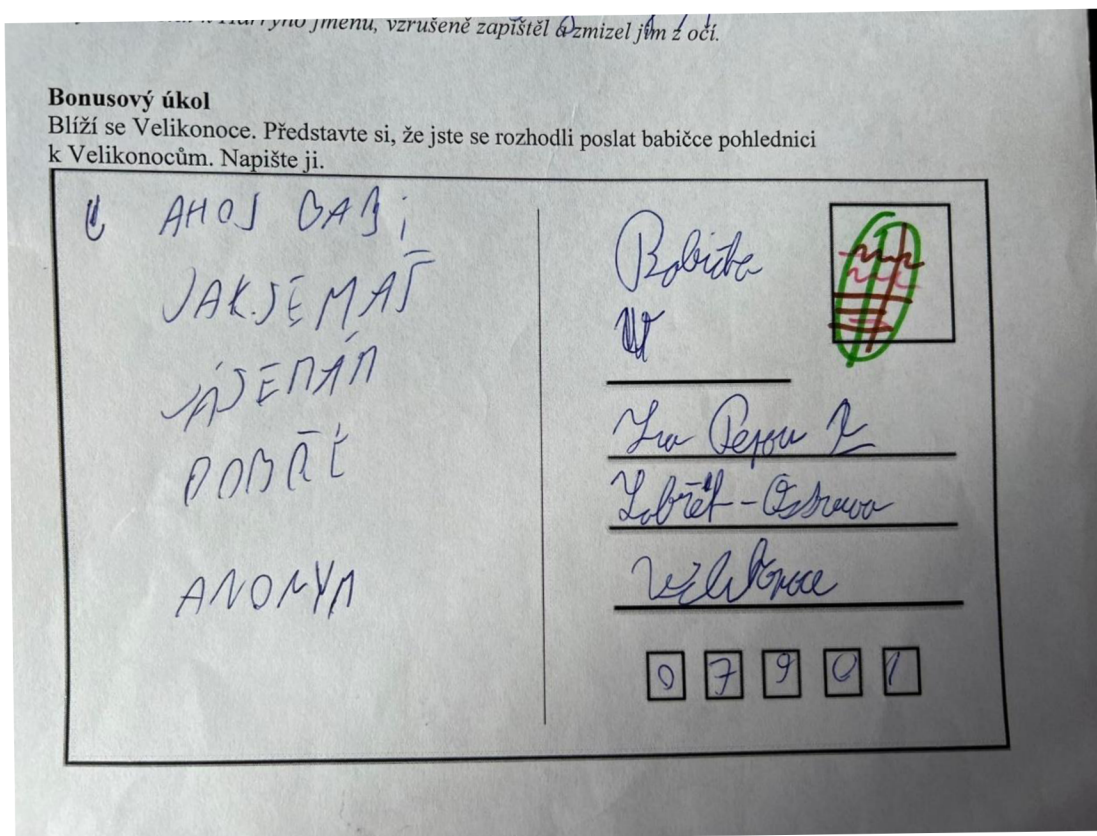 jménu, vzrušeně zapištěl a zmizel jim z očí.
Bonusový úkol
Blíží se Velikonoce. Představte si, že jste se rozhodli poslat babičce pohlednici
k Velikonocům. Napište ji.
AHOJ BABi
JAK SE MÁŠ
JÁ SE MÁM
DOBŘE
ANONYM
Babička
2
Ostrava
Velikonoce
0 7 9 0 1